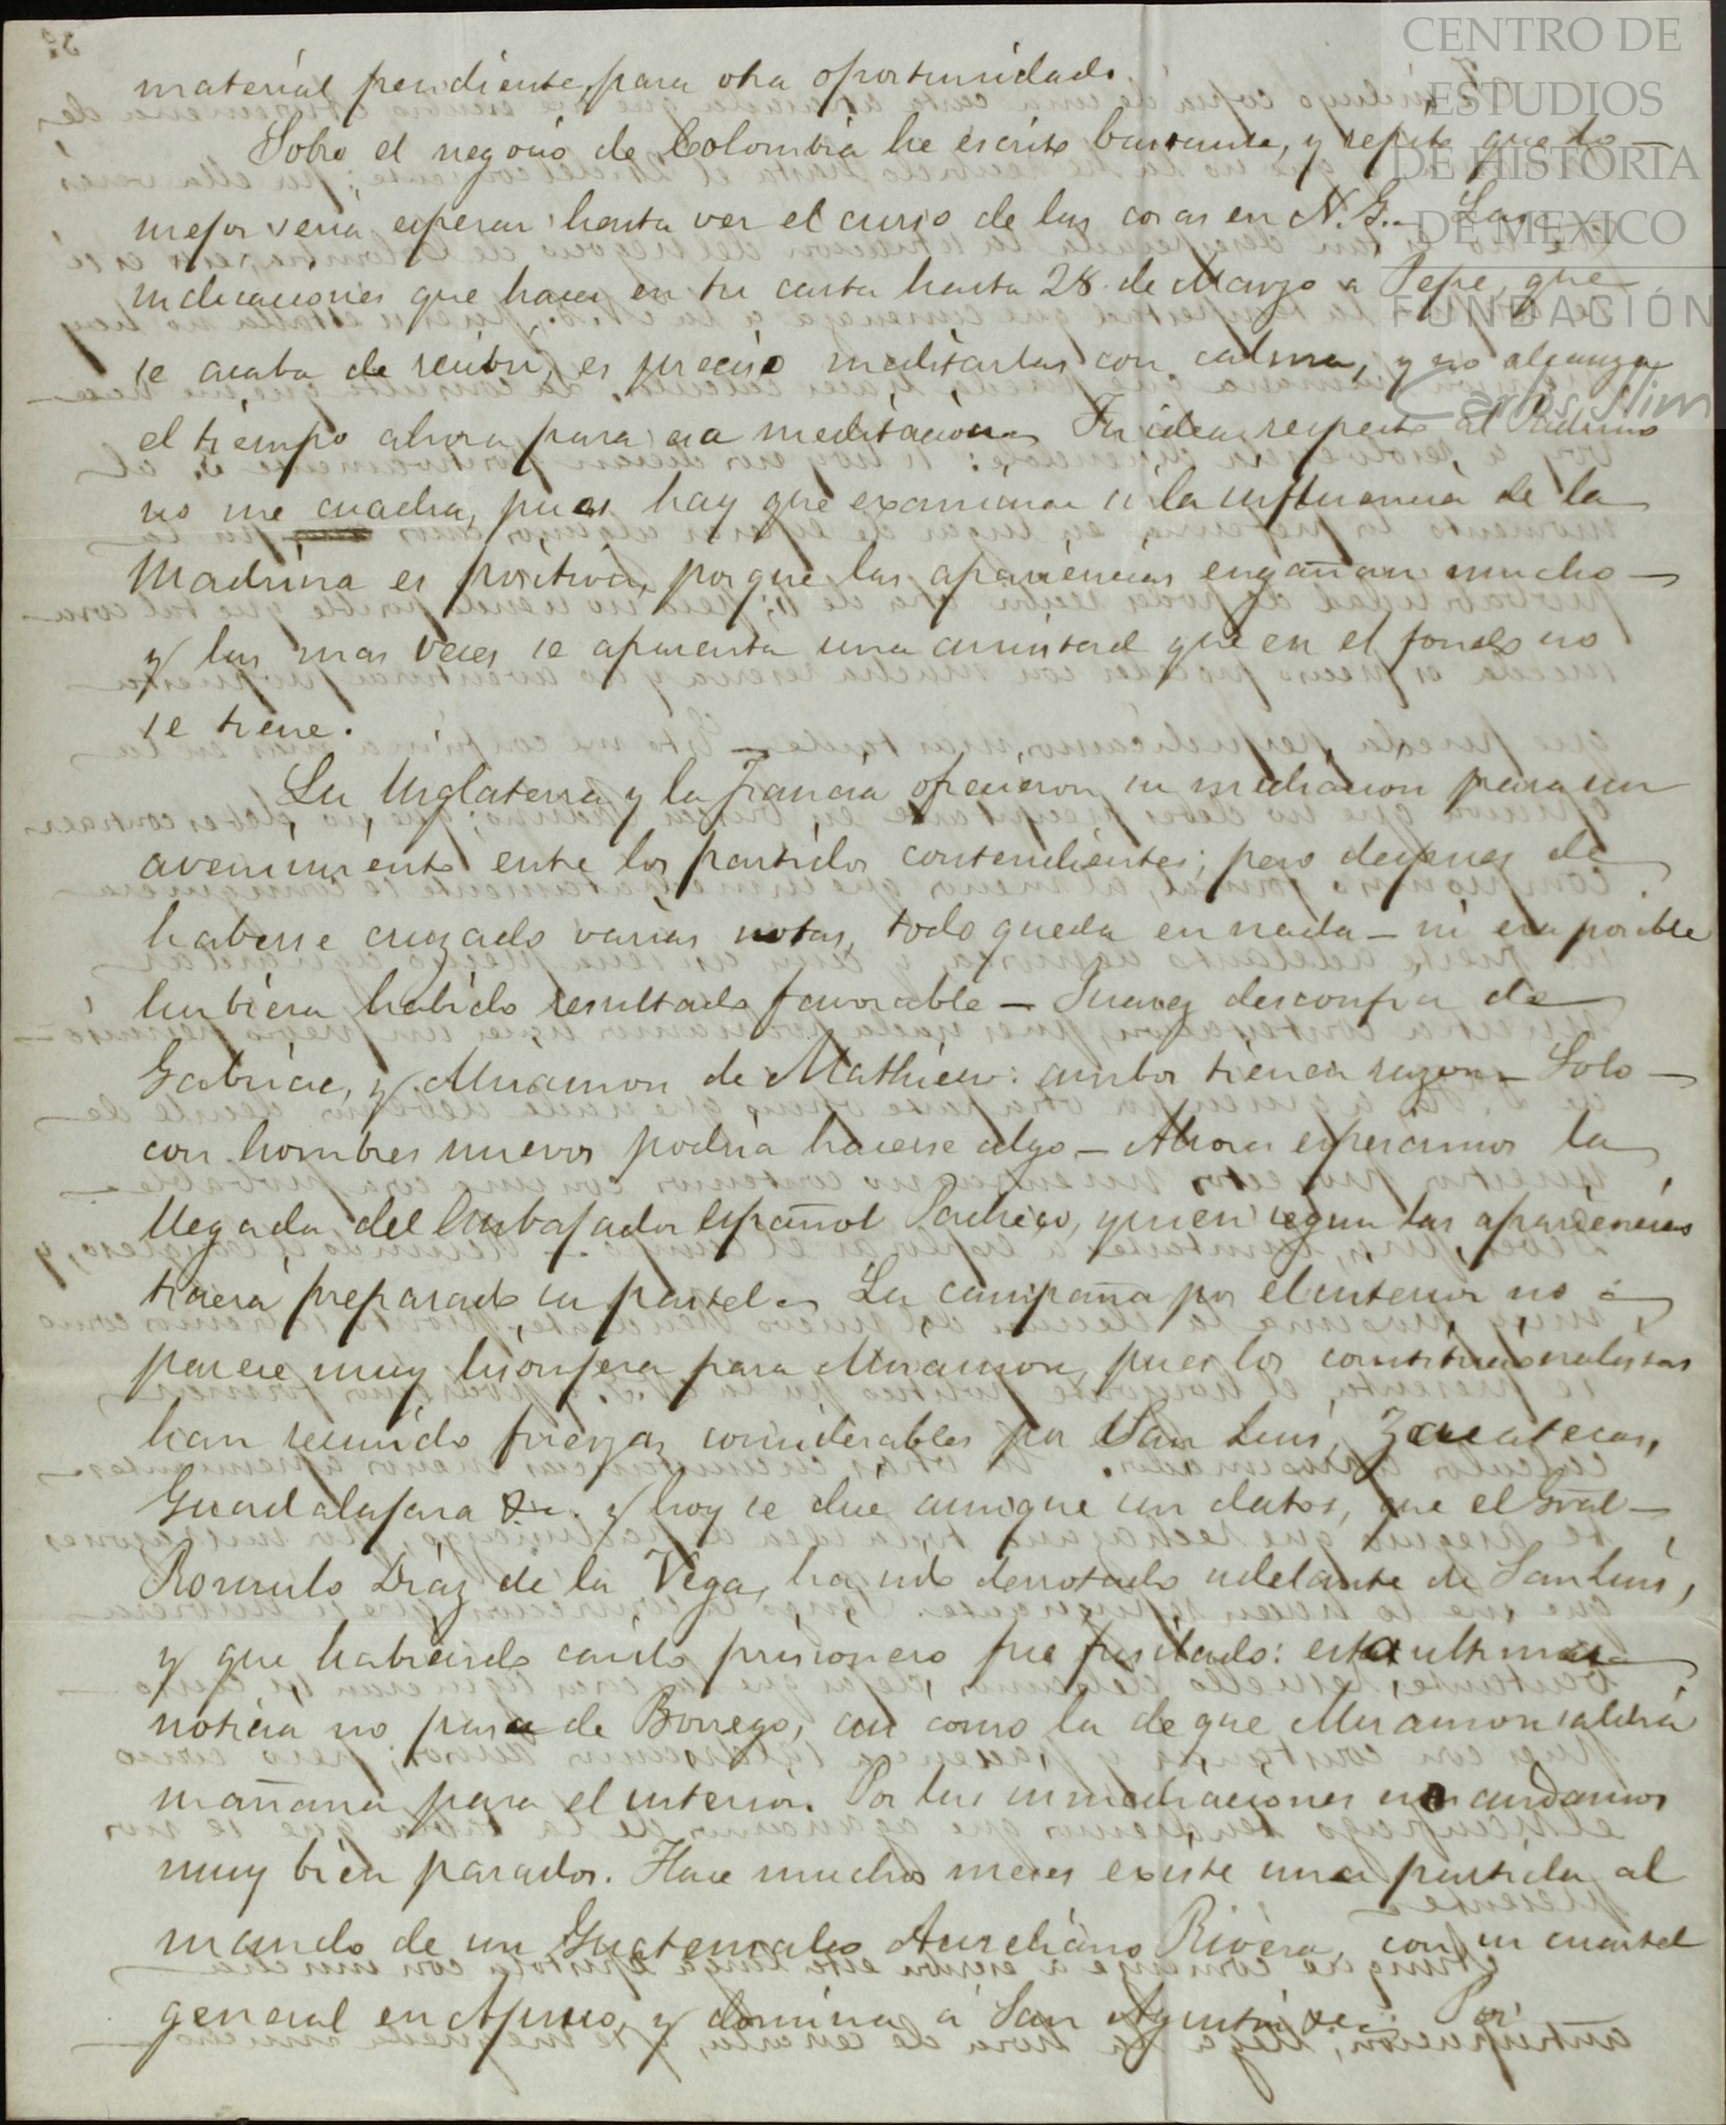 CENTRO DE
ESTUDIOS
DE HISTORIA
DE MEXICO
FUNDACIÓN
Carlos Slim
material pendiente, para otra oportunidad.
Sobre el negocio de Colombia he escrito bastante, y repito que lo
mejor seria esperar hasta ver el curso de las cosas en N. G. – Las
indicaciones que haces en tu carta hasta 28 de Marzo a Pepe, que
se acaba de recibir, es preciso meditarlas con calma, y no alcanza
el tiempo ahora para esa meditacion. Tu idea respecto al Padrino
no me cuadra, pues hay que examinar si la influencia de la
Madrina es positiva, porque las apariencias engañan mucho –
y las mas veces se aparenta una amistad que en el fondo no
se tiene.
La Inglaterra y la Francia ofrecieron su mediacion para un
avenimiento entre los partidos contendientes; pero despues de
haberse cruzado varias notas, todo queda en nada – ni era posible
hubiera habido resultado favorable – Juarez desconfia de
Gabriac, y Miramon de Mathieu: ambos tienen razon – Solo –
con hombres nuevos podria hacerse algo – Ahora esperamos la
llegada del Embajador español Pacheco, quien segun las apariencias
traerá preparado su pastel. – La campaña por el interior no
parece muy lisonjera para Miramon, pues los constitucionalistas
han reunido fuerzas considerables por San Luis, Zacatecas,
Guadalajara &a. y hoy se dice aunque sin datos, que el Gral –
Romulo Diaz de la Vega, ha sido derrotado adelante de San Luis,
y que habiendo caido prisionero fue fusilado: esta ultima
noticia no pasa de Borrego, asi como la de que Miramon saldrá
mañana para el interior. Por las inmediaciones no andamos
muy bien parados. Hace muchos meses existe una partida al
mando de un Guatemalteco Aureliano Rivera, con su cuartel
general en Ajusco, y domina á San Agustin &a. Por